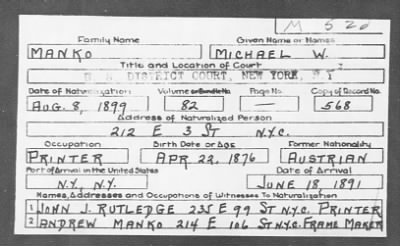 M 520
Family Name Given Name or Names
MANKO MICHAEL W.
Title and Location of Court
U. S. DISTRICT COURT, NEW YORK, N.Y.
Date of Naturalization Volume or Bundle No. Page No. Copy of Record No.
AUG. 8, 1899 82 — 568
Address of Naturalized Person
212 E 3 ST N.Y.C.
Occupation Birth Date or Age Former Nationality
PRINTER APR 22, 1876 AUSTRIAN
Port of Arrival in the United States Date of Arrival
N.Y., N.Y. JUNE 18, 1891
Names, Addresses and Occupations of Witnesses To Naturalization
1 JOHN J. RUTLEDGE 235 E 99 ST N.Y.C. PRINTER
2 ANDREW MANKO 214 E 106 ST N.Y.C. FRAME MAKER